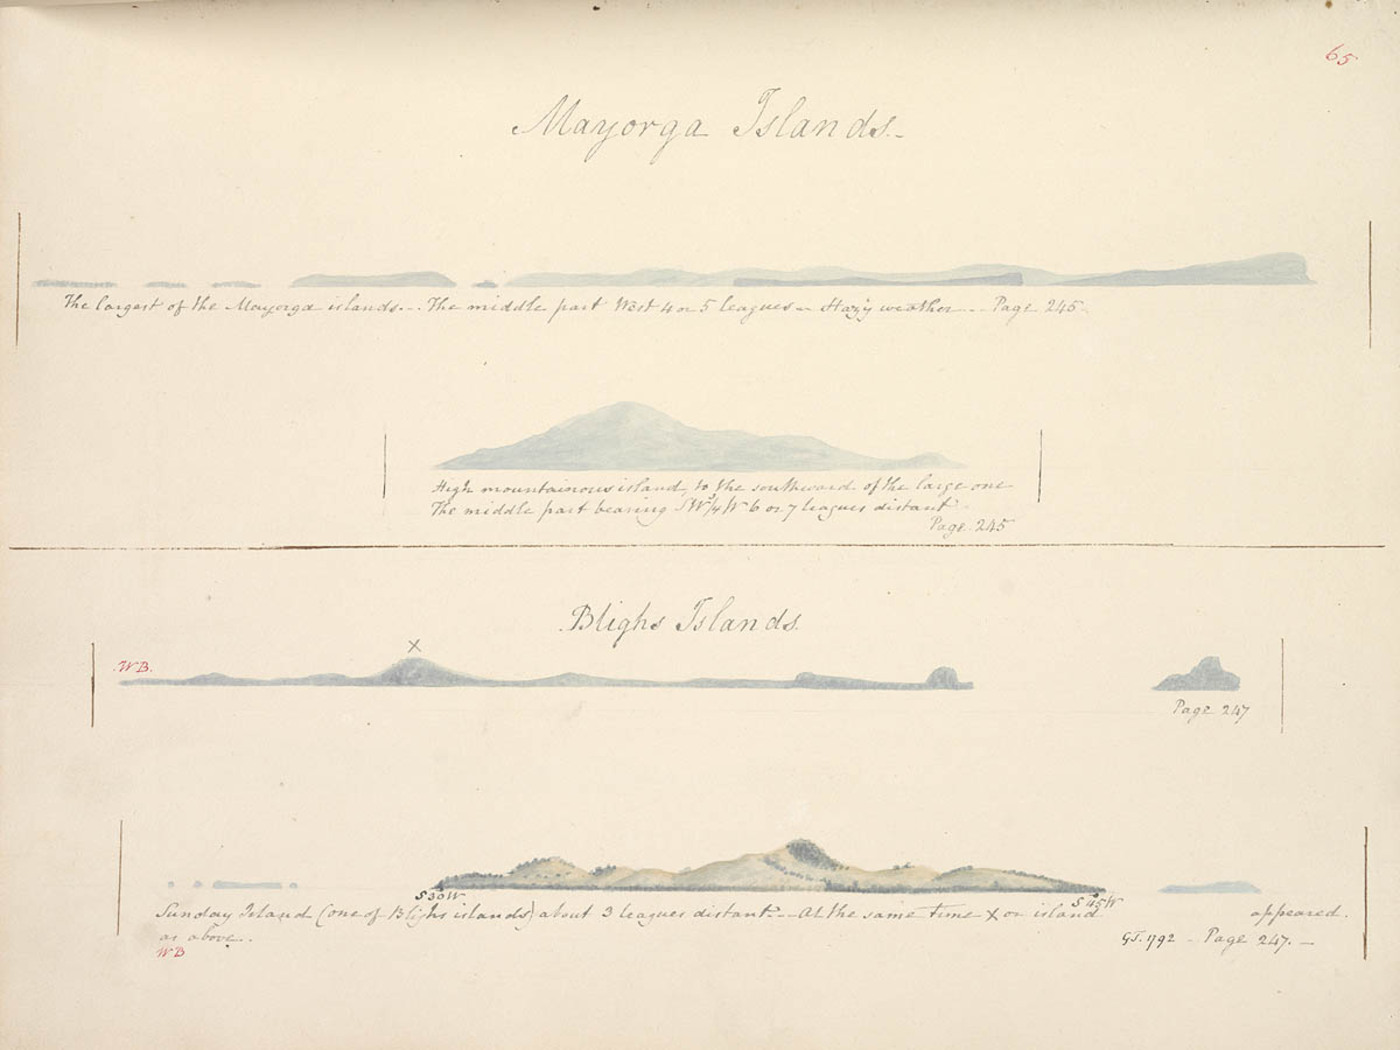 65
Mayorga Islands.
The largest of the Mayorga islands... The middle part West 4 or 5 leagues - Hazy weather - Page 245
High mountainous island, to the southward of the large one
The middle part bearing SW 3/4 W 6 or 7 leagues distant
Page 245
Blighs Islands.
X
W B.
Page 247
S 30 W
S 45 W
Sunday Island (one of Blighs islands) about 3 leagues distant - At the same time X or island appeared.
as above.
G.T. 1792 - Page 247. -
W B